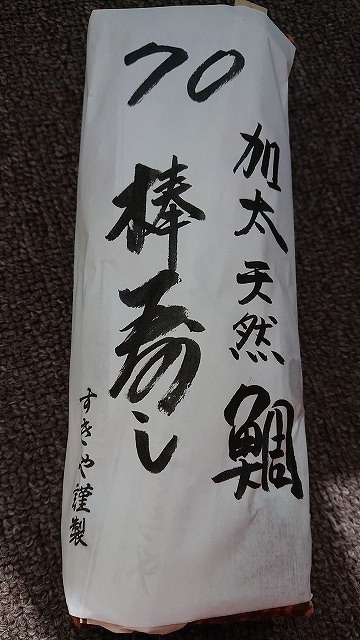 加太天然鯛
棒寿し
すきや謹製